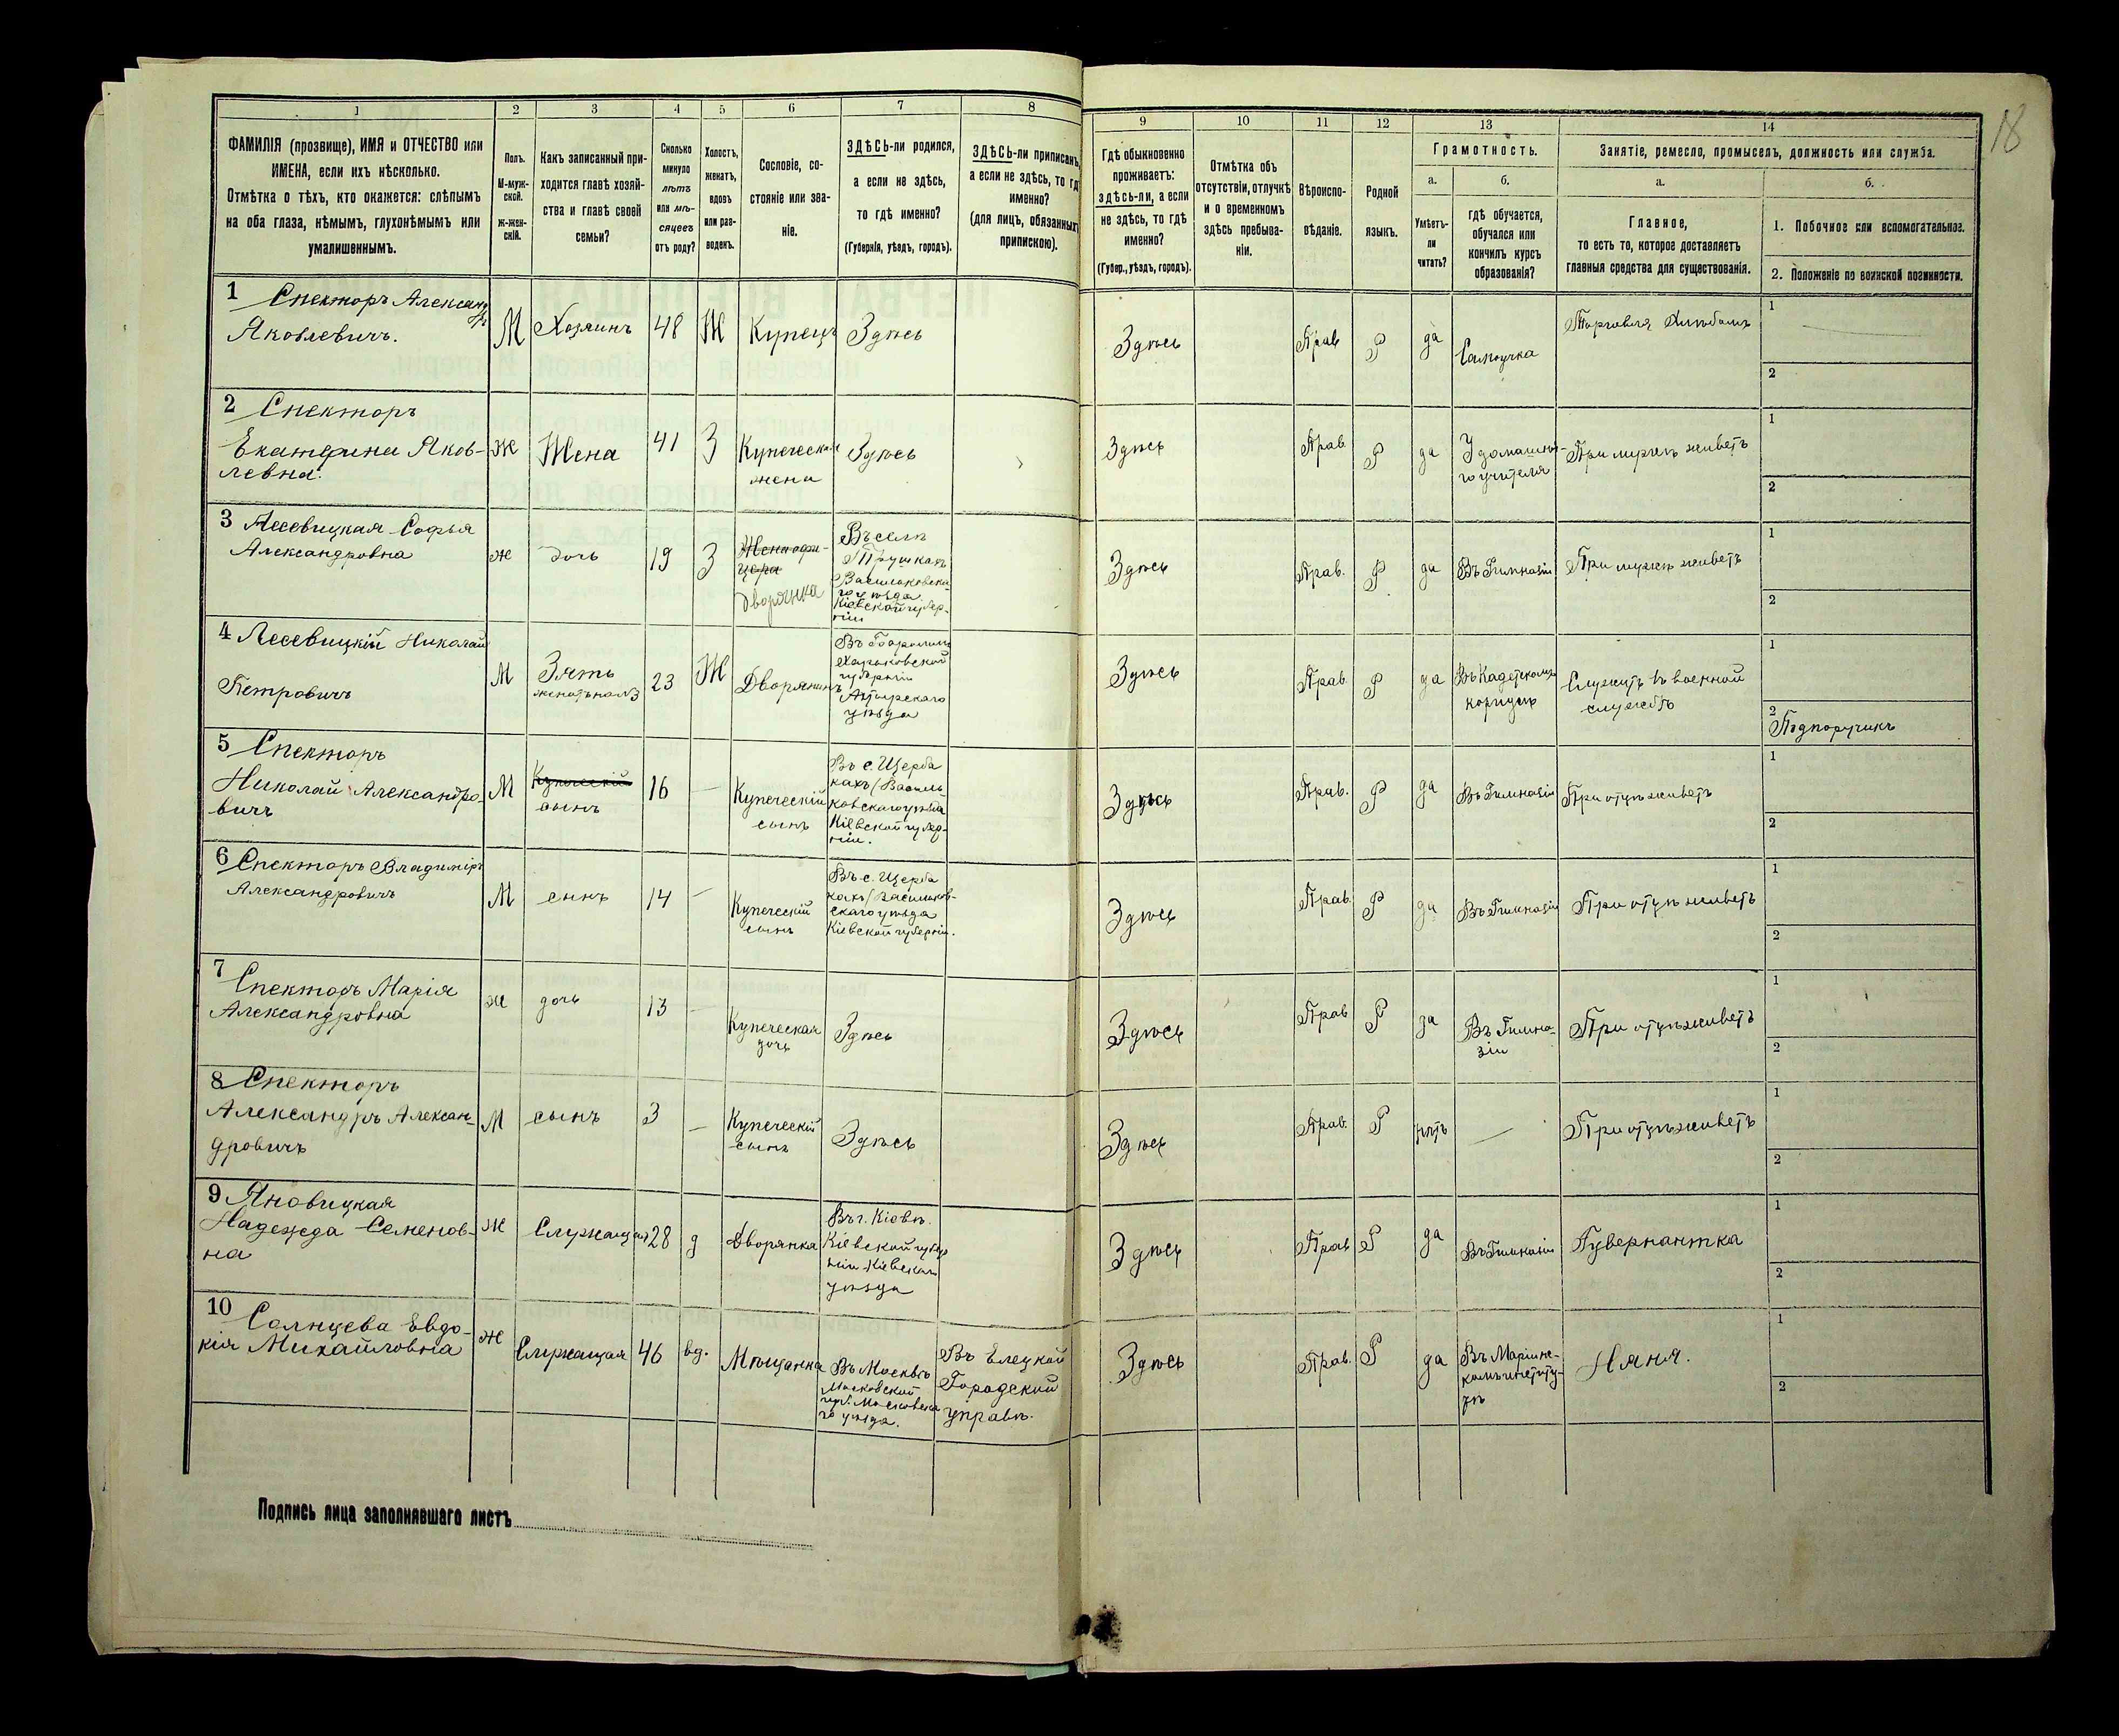 1 2 3 4 5 6 7 8 9 10 11 12 13 14
18
ФАМИЛІЯ (прозвище), ИМЯ и ОТЧЕСТВО или
ИМЕНА, если ихъ нѣсколько.
Отмѣтка о тѣхъ, кто окажется: слѣпымъ
на оба глаза, нѣмымъ, глухонѣмымъ или
умалишеннымъ.
Полъ.
М-муж-
ской.
ж-жен-
скій.
Какъ записанный при-
ходится главѣ хозяй-
ства и главѣ своей
семьи?
Сколько
минуло
лѣтъ
или мѣ-
сяцевъ
отъ роду?
Холостъ,
женатъ,
вдовъ
или раз-
веденъ.
Сословіе, со-
стояніе или зва-
ніе.
ЗДѢСЬ-ли родился,
а если не здѣсь,
то гдѣ именно?
(Губернія, уѣздъ, городъ).
ЗДѢСЬ-ли приписанъ,
а если не здѣсь, то гдѣ
именно?
(для лицъ, обязанныхъ
припискою).
Гдѣ обыкновенно
проживаетъ:
здѣсь-ли, а если
не здѣсь, то гдѣ
именно?
(Губер., уѣздъ, городъ).
Отмѣтка объ
отсутствіи, отлучкѣ
и о временномъ
здѣсь пребыва-
ніи.
Вѣроиспо-
вѣданіе.
Родной
языкъ.
Грамотность.
а.
Умѣетъ-
ли
читать?
б.
гдѣ обучается,
обучался или
кончилъ курсъ
образованія?
Занятіе, ремесло, промыселъ, должность или служба.
а.
Главное,
то есть то, которое доставляетъ
главныя средства для существованія.
б.
1. Побочное или вспомогательное.
2. Положеніе по воинской повинности.
1 Спекторъ Александръ
Яковлевичъ.
М
Хозяинъ
48
Ж
Купецъ
Здѣсь
Здѣсь
Прав
Р
да
Самоучка
Торговля Хлѣбомъ
1
2
2 Спекторъ
Екатерина Яков-
левна.
Ж
Жена
41
З
Купеческая
жена
Здѣсь
Здѣсь
Прав.
Р
да
У домашня-
го учителя
При мужѣ живетъ
1
2
3 Лесевицкая Софья
Александровна
Ж
дочь
19
З
Жена офи-
цера
Дворянка
Въ селѣ
Васильковска-
го уѣзда
Кіевской губер-
ніи
Здѣсь
Прав.
Р
да
Въ Гимназіи
При мужѣ живетъ
1
2
4 Лесевицкій Николай
Петровичъ
М
Зять
женатъ на № 3
23
Ж
Дворянинъ
Въ
Харьковской
губерніи
Ахтырскаго
уѣзда
Здѣсь
Прав.
Р
да
Въ Кадетскомъ
корпусѣ
Служитъ въ военной
службѣ
1
2
Подпоручикъ
5 Спекторъ
Николай Александро-
вичъ
М
Купеческій
сынъ
16
—
Купеческій
сынъ
Въ с. Щерба
кахъ (Василь-
ковскаго уѣзда
Кіевской губер-
ніи.
Здѣсь
Прав.
Р
да
Въ Гимназіи
При отцѣ живетъ
1
2
6 Спекторъ Владиміръ
Александровичъ
М
сынъ
14
—
Купеческій
сынъ
Въ с. Щерба
кахъ (Васильков-
скаго уѣзда
Кіевской губерніи.
Здѣсь
Прав.
Р
да
Въ Гимназіи
При отцѣ живетъ
1
2
7 Спекторъ Марія
Александровна
Ж
дочь
13
—
Купеческая
дочь
Здѣсь
Здѣсь
Прав
Р
да
Въ Гимна-
зіи
При отцѣ живетъ
1
2
8 Спекторъ
Александръ Алексан-
дровичъ
М
сынъ
3
—
Купеческій
сынъ
Здѣсь
Здѣсь
Прав.
Р
нѣтъ
—
При отцѣ живетъ
1
2
9 Яновицкая
Надежда Семенов-
на
Ж
Служащая
28
д
Дворянка
Въ г. Кіевѣ.
Кіевской губер
ніи Кіевскаго
уѣзда
Здѣсь
Прав
Р
да
Въ Гимназіи
Гувернантка
1
2
10 Солнцева Евдо-
кія Михайловна
Ж
Служащая
46
вд.
Мѣщанка
Въ Москвѣ
Московской
губ. Московска
го уѣзда.
Въ Елецкой
Городской
управѣ.
Здѣсь
Прав.
Р
да
Въ Маріинс-
комъ институ-
тѣ
Няня.
1
2
Подпись лица заполнявшаго листъ